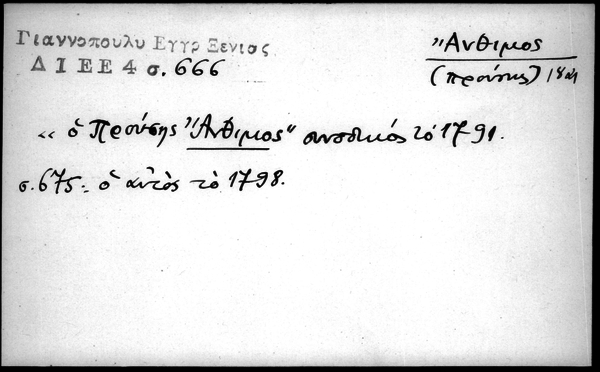 Γιαννοπουλυ Εγγρ Ξενιας
Δ Ι Ε Ε 4 σ. 666
Ἄνθιμος
(Προύσης) 18αι
" ὁ Προύσης "Ἄνθιμος" συνοδικός τὸ 1791.
σ. 675: ὁ αὐτὸς τὸ 1798.